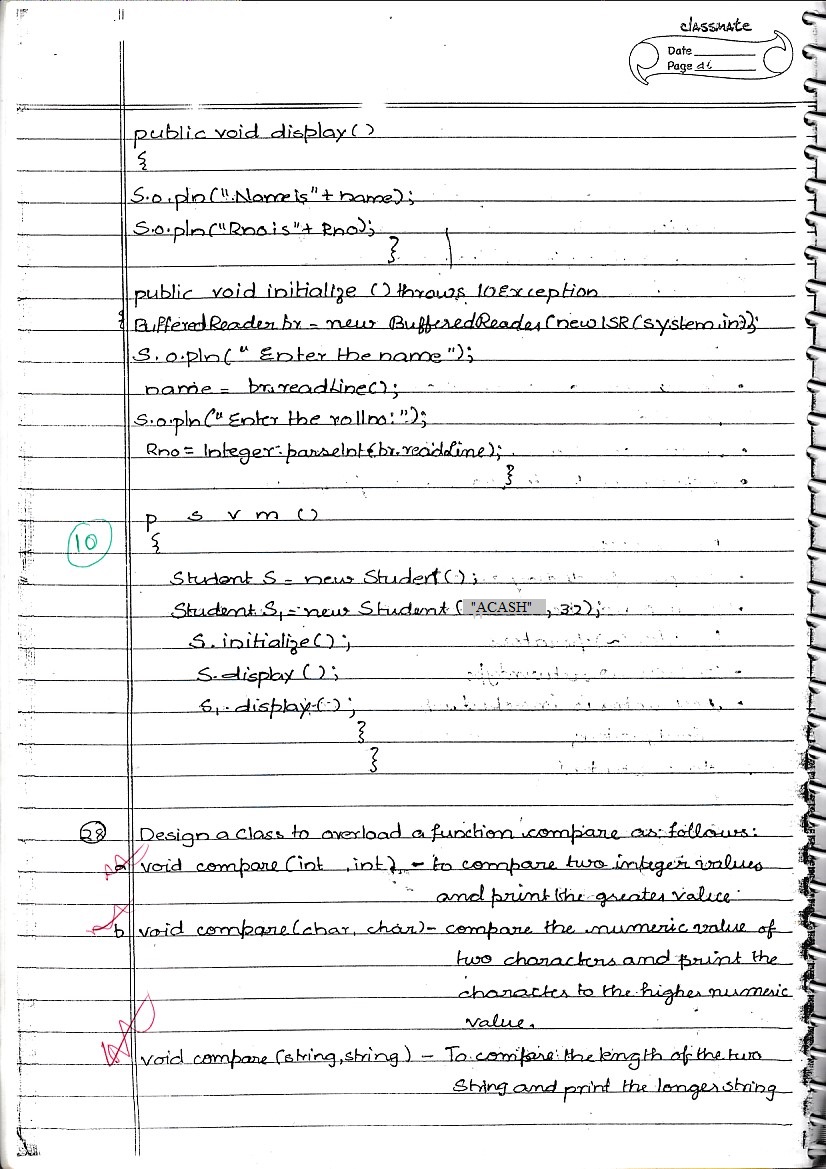 classmate
Date
Page
public void display()
{
S.o.pln("Name is"+ name);
S.o.pln("Rno is"+ Rno);
}
public void initialize () throws IOException
{ BufferedReader br = new BufferedReader(new ISR(System.in));
S.o.pln(" Enter the name ");
name = br.readLine();
S.o.pln(" Enter the rollno:");
Rno = Integer.parseInt(br.readLine);
}
10
p s v m ()
{
Student S = new Student();
Student S1 = new Student ( "ACASH" , 32);
S.initialize();
S.display ();
S1.display();
}
}
28 Design a class to overload a function compare as follows:
a void compare (int ,int) - to compare two integer values
and print the greater value.
b void compare(char, char)- compare the numeric value of
two characters and print the
character to the higher numeric
value.
void compare (string,string) - To compare the length of the two
String and print the longer string